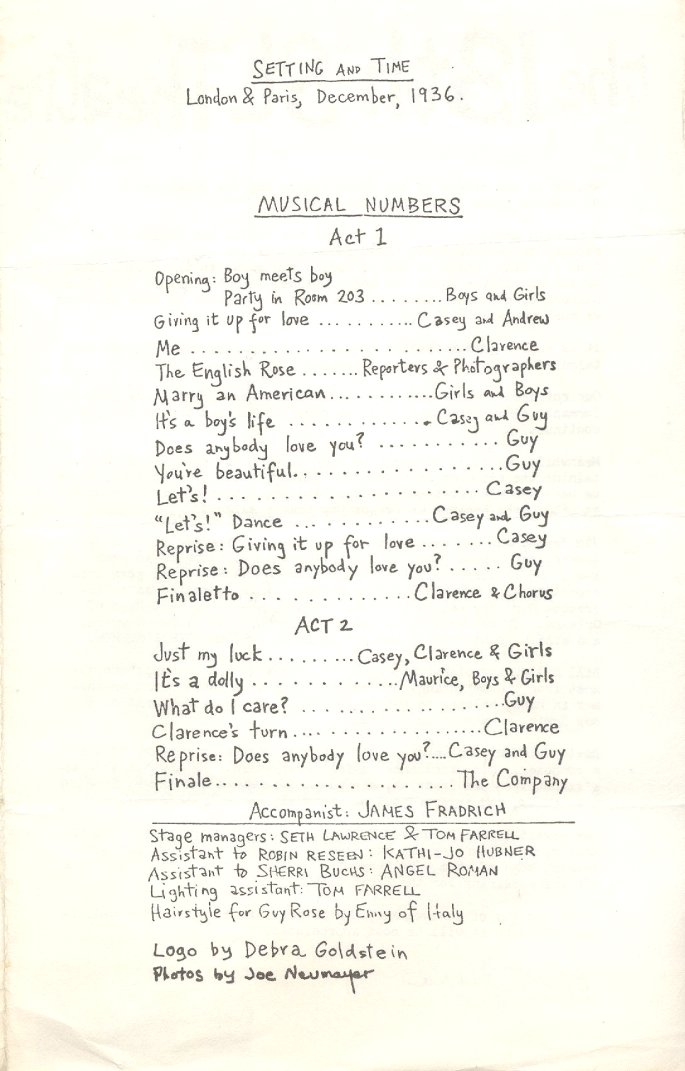 SETTING AND TIME
London & Paris, December, 1936.
MUSICAL NUMBERS
Act 1
Opening: Boy meets boy
Party in Room 203 ........ Boys and Girls
Giving it up for love ........... Casey and Andrew
Me ........................ Clarence
The English Rose ....... Reporters & Photographers
Marry an American ........... Girls and Boys
It's a boy's life ............. Casey and Guy
Does anybody love you? ........... Guy
You're beautiful .................. Guy
Let's! .................... Casey
"Let's!" Dance ............ Casey and Guy
Reprise: Giving it up for love ....... Casey
Reprise: Does anybody love you? ..... Guy
Finaletto ............. Clarence & Chorus
ACT 2
Just my luck ......... Casey, Clarence & Girls
It's a dolly ............ Maurice, Boys & Girls
What do I care? .................. Guy
Clarence's turn .................. Clarence
Reprise: Does anybody love you? .... Casey and Guy
Finale ..................... The Company
Accompanist: JAMES FRADRICH
Stage managers: SETH LAWRENCE & TOM FARRELL
Assistant to ROBIN RESEEN: KATHI-JO HUBNER
Assistant to SHERRI BUCHS: ANGEL ROMAN
Lighting assistant: TOM FARRELL
Hairstyle for Guy Rose by Enny of Italy
Logo by Debra Goldstein
Photos by Joe Neumayer